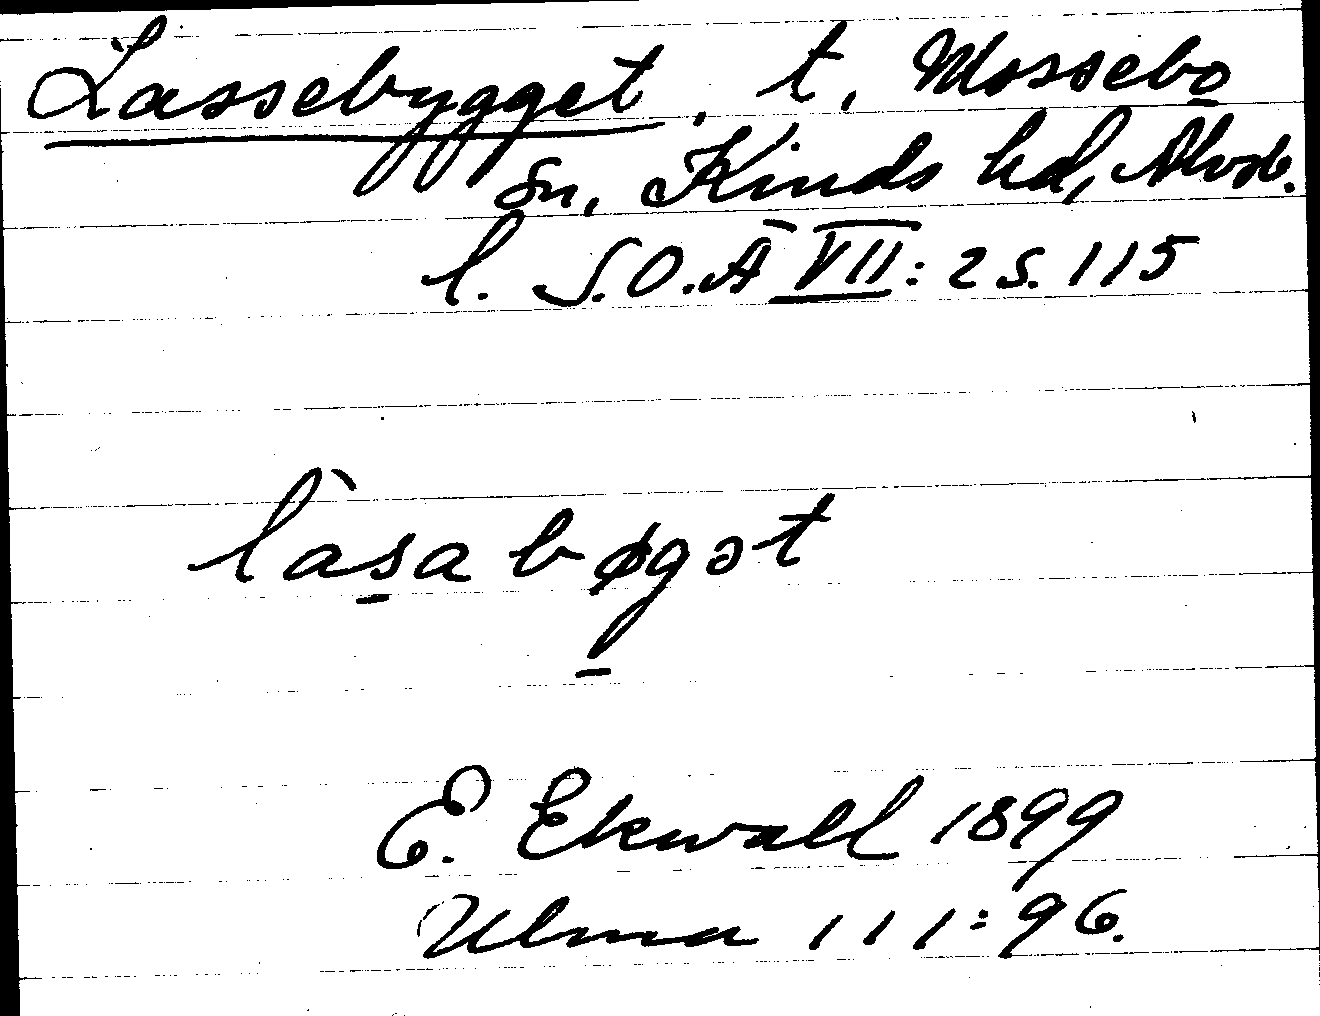 Lassebygget. t. Mossebo
sn, Kinds hd, Älvsb.
l. S.O.Ä VII: 2 s. 115
làsa bøgət
E. Ekwall 1899
Ulma 111:96.